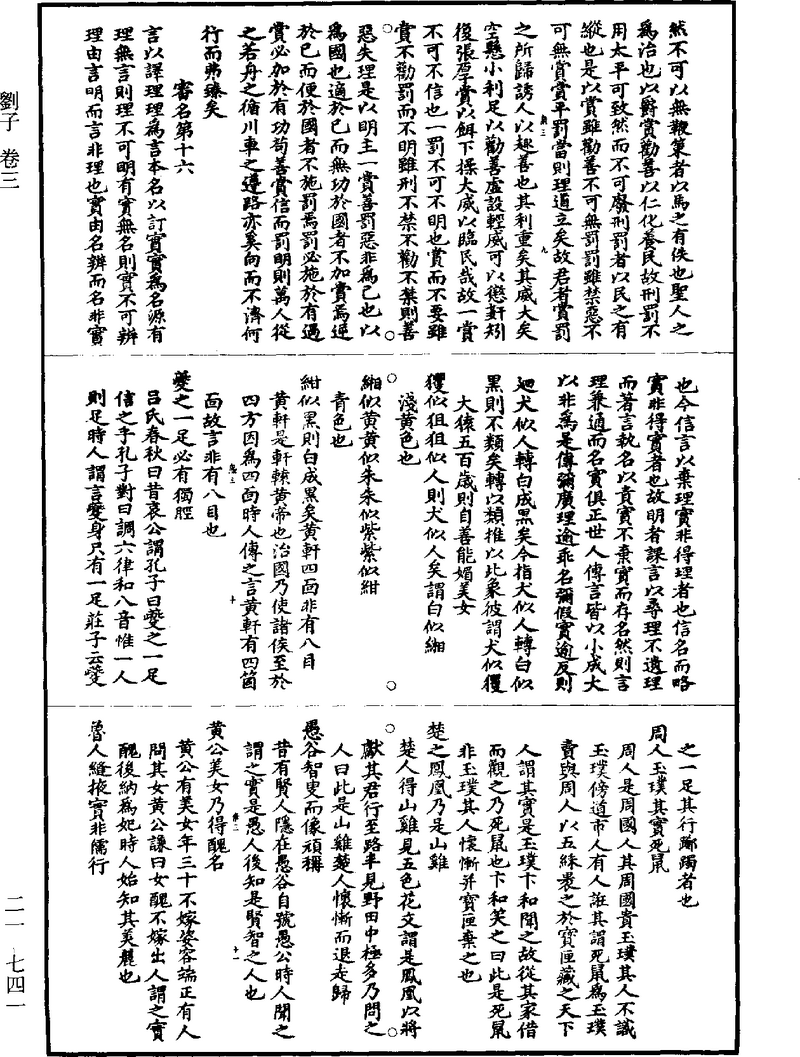 劉子 卷三
然不可以無鞭策者以馬之有佚也聖人之
爲治也以爵賞勸善以仁化養民故刑罰不
用太平可致然而不可廢刑罰者以民之有
縱也是以賞雖勸善不可無罰罰雖禁惡不
可無賞賞平罰當則理道立矣故君者賞罰
之所歸誘人以趣善也其利重矣其威大矣
空懸小利足以勸善虛設輕威可以懲姧矧
復張厚賞以餌下操大威以臨民哉故一賞
不可不信也一罰不可不明也賞而不要雖
賞不勸罰而不明雖刑不禁不勸不禁則善
惡失理是以明主一賞善罰惡非爲己也以
爲國也適於己而無功於國者不加賞焉逆
於己而便於國者不施罰焉罰必施於有過
賞必加於有功苟善賞信而罰明則萬人從
之若舟之循川車之遵路亦奚向而不濟何
行而弗臻矣
審名第十六
言以譯理理爲言本名以訂實實爲名源有
理無言則理不可明有實無名則實不可辨
理由言明而言非理也實由名辨而名非實
也今信言以棄理實非得理者也信名而略
實非得實者也故明者課言以尋理不遺理
而著言執名以責實不棄實而存名然則言
理兼通而名實俱正世人傳言皆以小成大
以非爲是傳彌廣理逾乖名彌假實逾反則
廻犬似人轉白成黑矣今指犬似人轉白似
黑則不類矣轉以類推以此象彼謂犬似玃
大猿五百歲則自善能媚美女
玃似狙狙似人則犬似人矣謂白似緗
淺黄色也
緗似黄黄似朱朱似紫紫似紺
青色也
紺似黑則白成黑矣黄軒四面非有八目
黄軒是軒轅黄帝也治國乃使諸侯至於
四方因爲四面時人傳之言黄軒有四箇
面故言非有八目也
夔之一足必有獨脛
吕氏春秋曰昔哀公謂孔子曰夔之一足
信之乎孔子對曰調六律和八音惟一人
則足時人謂言夔身只有一足莊子云夔
之一足其行踸踔者也
周人玉璞其實死鼠
周人是周國人其周國貴玉璞其人不識
玉璞傍道市人有人誑其謂死鼠爲玉璞
賣與周人以五綵裹之於寶匣藏之天下
人謂其實是玉璞卞和聞之故從其家借
而觀之乃死鼠也卞和笑之曰此是死鼠
非玉璞其人懷慚并寶匣棄之也
楚之鳳凰乃是山雞
楚人得山雞見五色花文謂是鳳凰以將
獻其君行至路半見野田中極多乃問之
人曰此是山雞楚人懷慚而退走歸
愚谷智叟而像頑稱
昔有賢人隱在愚谷自號愚公時人聞之
謂之實是愚人後知是賢智之人也
黄公美女乃得醜名
黄公有美女年三十不嫁姿容端正有人
問其女黄公謙曰女醜不嫁出人謂之實
醜後納爲妃時人始知其美麗也
魯人縫掖實非儒行
二一 七四一